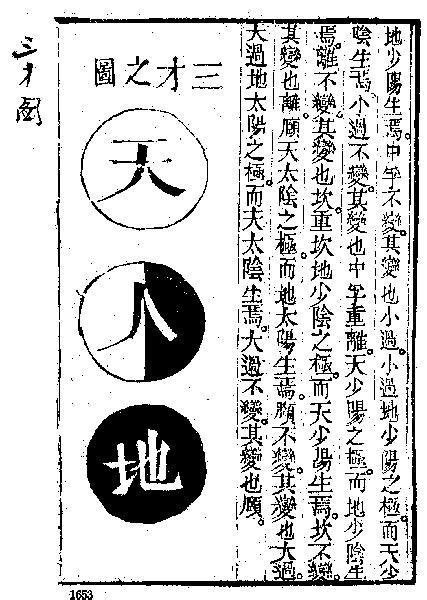 地少陽生焉。中孚不變。其變也小過。小過地少陽之極而天少
陰生焉。小過不變。其變也中孚重離。天少陽之極。而地少陰生
焉。離不變。其變也坎。重坎地少陰之極。而天少陽生焉。坎不變。
其變也離。頤天太陰之極。而地太陽生焉。頤不變。其變也大過。
大過地太陽之極而天太陰生焉。大過不變。其變也頤。
三才之圖
天
人
地
三才图
1653